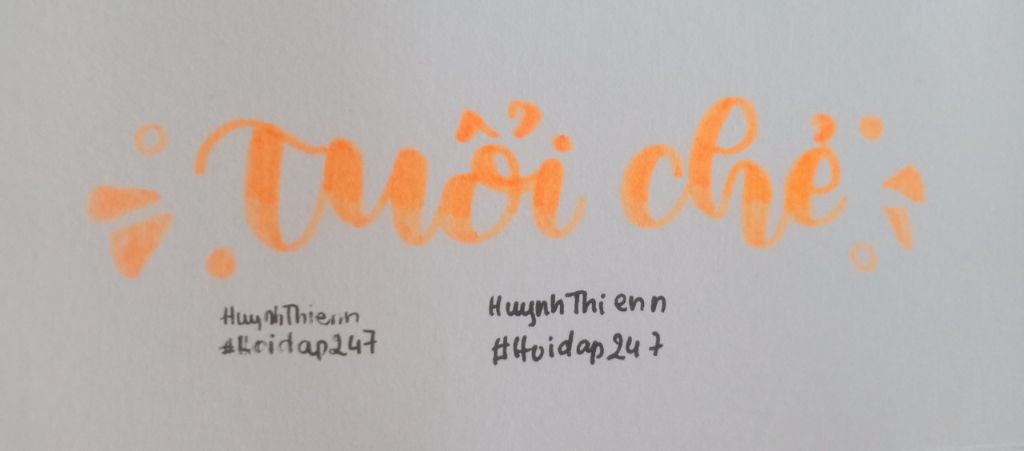 Tuổi chẻ
HuynhThienn
#Hoidap247
HuynhThienn
#Hoidap247